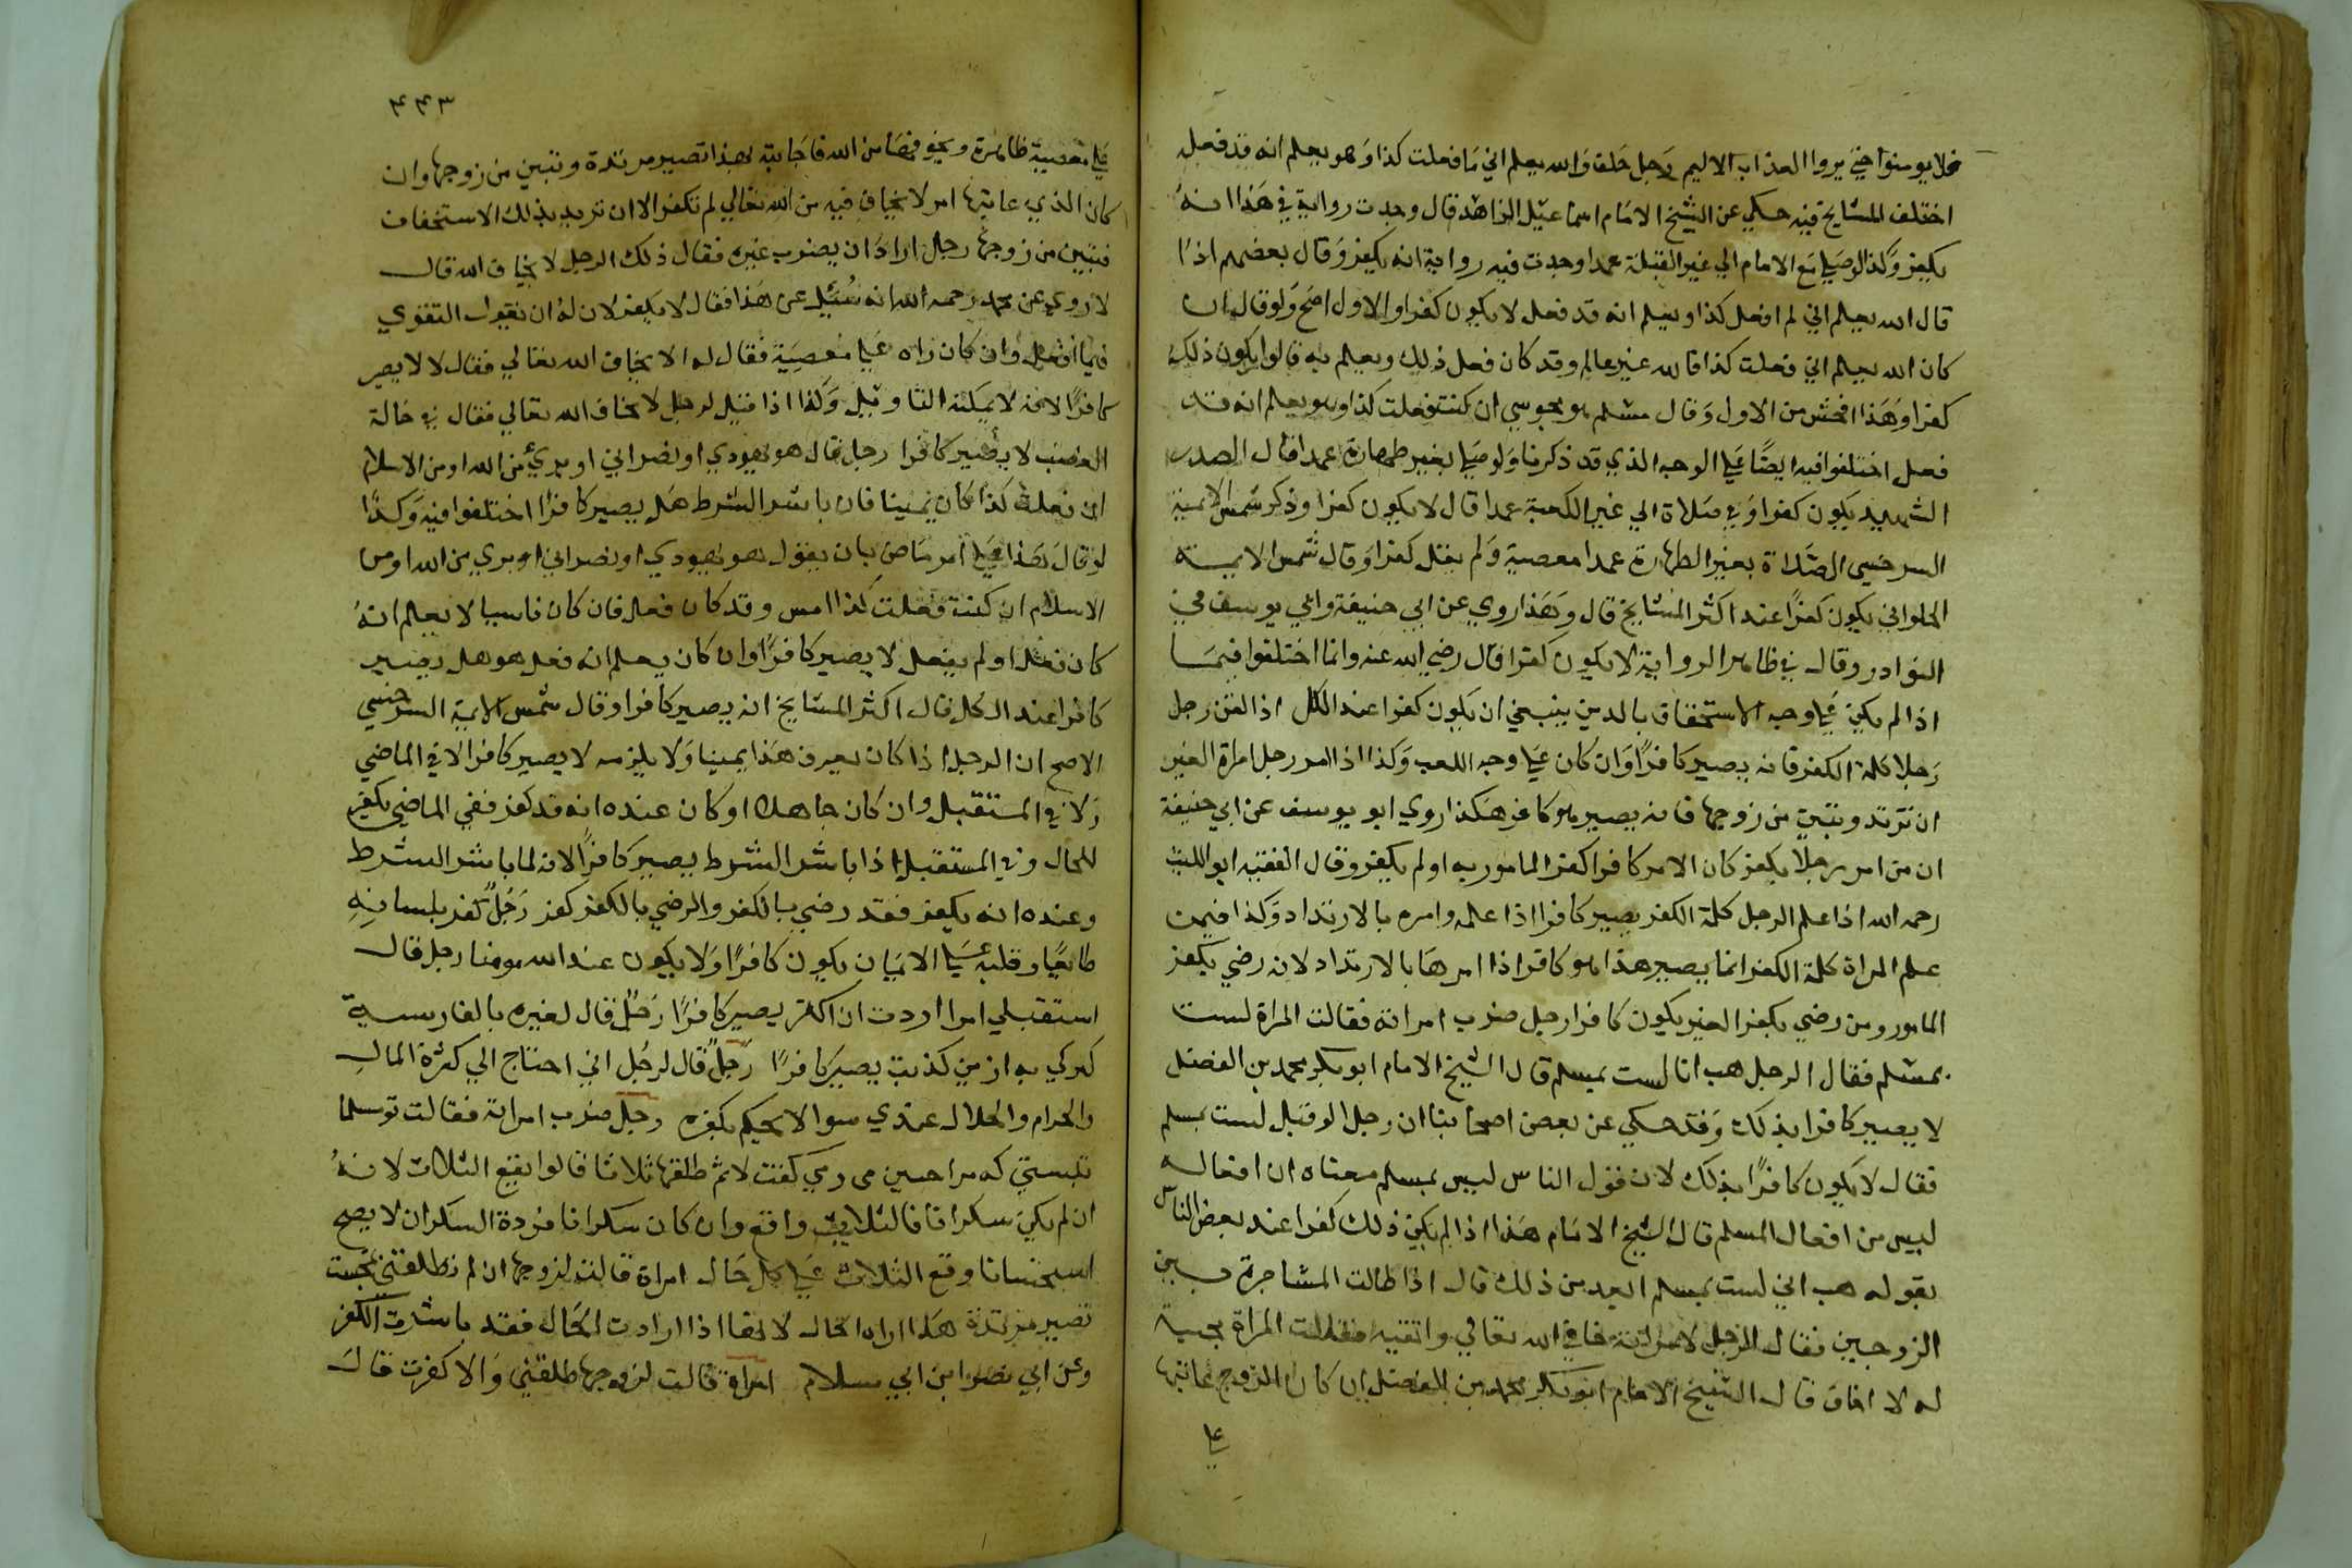 فلا يومنوا حتى يروا العذاب الاليم رجل حلف والله يعلم اني ما فعلت كذا وهو يعلم انه قد فعل
اختلف المشايخ فيه حكي عن الشيخ الامام اسماعيل الزاهد قال وجدت رواية في هذا انه
يكفر وكذا لو صلى مع الامام الي غير القبلة عمدا وجدت فيه رواية انه يكفر وقال بعضهم اذا
قال الله يعلم اني لم افعل كذا ويعلم انه قد فعل لا يكون كفرا والاول اصح ولو قال ان
كان الله يعلم اني فعلت كذا قال غير عالم وقد كان فعل ذلك ويعلم به قالوا يكون ذلك
كفرا وهذا افحش من الاول وقال مسلم هو مجوسي ان كنت فعلت كذا وهو يعلم انه قد
فعل اختلفوا فيه ايضا على الوجه الذي قد ذكرنا ولو صلى بغير طهارة عمدا قال الصدر
الشهيد يكون كفرا وفي صلاة الي غير الكعبة عمدا قال لا يكون كفرا وذكر شمس الايمة
السرخسي الصلاة بغير الطهارة عمدا معصية ولم يقل كفرا وقال شمس الايمة
الحلواني يكون كفرا عند اكثر المشايخ قال وهذا روي عن ابي حنيفة وابي يوسف في
النوادر وقال في ظاهر الرواية لا يكون كفرا قال رضي الله عنه وانما اختلفوا فيما
اذا لم يكن على وجه الاستخفاف بالدين ينبغي ان يكون كفرا عند الكل اذا لقن رجل
رجلا كلمة الكفر فانه يصير كافرا وان كان على وجه اللعب وكذا اذا امر رجل امراة الغير
ان ترتد وتبين من زوجها فانه يصير هو كافر هكذا روي ابو يوسف عن ابي حنيفة
ان من امر رجلا يكفر كان الامر كافرا كفر المامور به او لم يكفر وقال الفقيه ابو الليث
رحمه الله اذا علم الرجل كلمة الكفر يصير كافرا اذا علمه وامره بالارتداد وكذا فيمن
علم المراة كلمة الكفر انما يصير هذا هو كافرا اذا امرها بالارتداد لانه رضي بكفر
المامور ومن رضي بكفر الغير يكون كافرا رجل ضرب امراته فقالت المراة لست
بمسلم فقال الرجل هب انا لست بمسلم قال الشيخ الامام ابو بكر محمد بن الفضل
لا يصير كافرا بذلك وقد حكي عن بعض اصحابنا ان رجلا لو قيل لست بمسلم
فقال لا يكون كافرا بذلك لان قول الناس ليس بمسلم معناه ان افعاله
ليس من افعال المسلم قال الشيخ الامام هذا اذا لم يكن ذلك كفرا عند بعض الناس
بقوله هب اني لست بمسلم ابعد من ذلك قال اذا طالت المشاجرة بين
الزوجين فقال الرجل لامراته خافي الله تعالي واتقيه فقالت المراة مجيبة
له لا اخاف قال الشيخ الامام ابو بكر محمد بن الفضل ان كان الزوج عاتبها
على
٤٤٣
على معصية ظاهرة ويخوفها من الله فاجابته بهذا تصير مرتدة وتبين من زوجها وان
كان الذي عاتبها امر لا يخاف فيه من الله تعالي لم تكفر الا ان تريد بذلك الاستخفاف
فتبين من زوجها رجل اراد ان يضرب غيره فقال ذلك الرجل لا تخاف الله قال
لا روي عن محمد رحمه الله انه سئل عن هذا فقال لا يكفر لان له ان يقول التقوي
فيما افعل وان كان راه على معصية فقال له الا تخاف الله تعالي فقال لا لا يصير
كافرا لانه لا يمكنه التاويل وكذا اذا قيل لرجل لا تخاف الله تعالي فقال في حالة
الغضب لا يصير كافرا رجل قال هو يهودي او نصراني او بريء من الله او من الاسلام
ان فعلت كذا كان يمينا فان باشر الشرط هل يصير كافرا اختلفوا فيه وكذا
لو قال هذا على امر ماض بان يقول هو يهودي او نصراني او بري من الله او من
الاسلام ان كنت فعلت كذا امس وقد كان فعل فان كان ناسيا لا يعلم انه
كان فعل او لم يفعل لا يصير كافرا وان كان يعلم انه فعل هو هل يصير
كافرا عند الكل قال اكثر المشايخ انه يصير كافرا وقال شمس الايمة السرخسي
الاصح ان الرجل اذا كان يعرف هذا يمينا ولا يلزمه لا يصير كافرا لا في الماضي
ولا في المستقبل وان كان جاهلا او كان عنده انه قد كفر ففي الماضي يكفر
للحال وفي المستقبل اذا باشر الشرط يصير كافرا لانه لما باشر الشرط
وعنده انه يكفر فقد رضي بالكفر والرضي بالكفر كفر رجل كفر بلسانه
طايعا وقلبه على الايمان يكون كافرا ولا يكون عند الله مومنا رجل قال
استقبلي امرا اردت ان اكفر يصير كافرا رجل قال لغيره بالفارسية
به از من كذبت يصير كافرا رجل قال لرجل اني احتاج الي كثرة المال
والحرام والحلال عندي سوا لا يحكم بكفره رجل ضرب امراته فقالت تو مسلمان
نيستي كه مرا چنين مي زني گفت لا ثم طلقها ثلاثا قالوا يقع الثلاث لانه
ان لم يكن سكرانا فالثلاث واقع وان كان سكرانا فردة السكران لا يصح
استحسانا وقع الثلاث على كل حال امراة قالت لزوجها ان لم تطلقني
تصير مرتدة هذا الحال لانها اذا ارادت الحال فقد باشرت الكفر
وعن ابي نصر ابن ابي سلام امراة قالت لزوجها طلقني والا كفرت قال